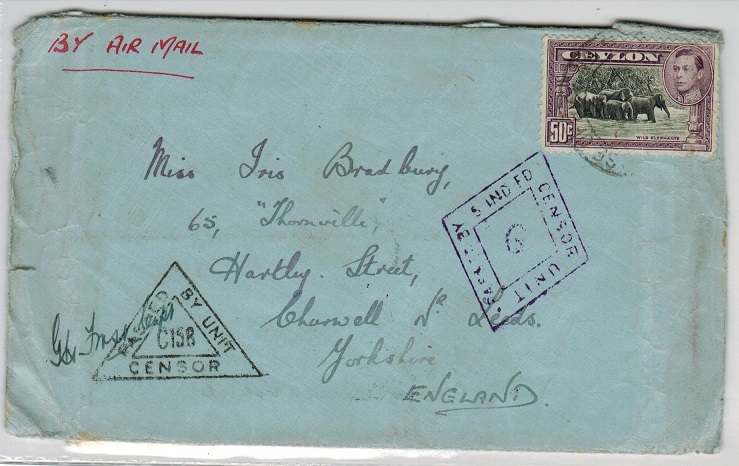 BY AIR MAIL
CEYLON
50c
WILD ELEPHANTS
Miss Iris Bradbury,
65, "Thornville,"
Hartley Street,
Churwell Nr Leeds.
Yorkshire
ENGLAND.
BY UNIT
C158
CENSOR
S IND FD CENSOR UNIT
BY